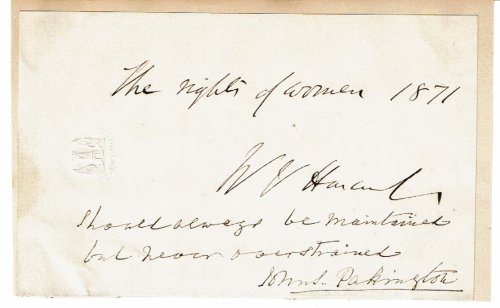 The rights of women 1871
W V Harcourt
should always be maintained
but never overstrained
John S. Pakington